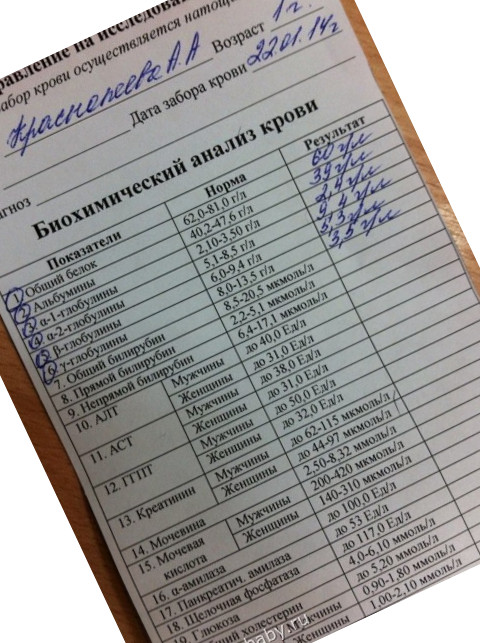 равление на исследован
забор крови осуществляется натощак
А.А Возраст 1 г.
Дата забора крови 22.01.14г
Биохимический анализ крови
Показатели Норма Результат
1 Общий белок 62,0-81,0 г/л 60 г/л
2 Альбумины 40,2-47,6 г/л 39 г/л
3 α-1-глобулины 2,10-3,50 г/л 2,4 г/л
4 α-2-глобулины 5,1-8,5 г/л г/л
5 β-глобулины 6,0-9,4 г/л г/л
6 γ-глобулины 8,0-13,5 г/л 3,5 г/л
7. Общий билирубин 8,5-20,5 мкмоль/л
8. Прямой билирубин 2,2-5,1 мкмоль/л
9. Непрямой билирубин 6,4-17,1 мкмоль/л
10. АЛТ Мужчины до 40,0 Ед/л
Женщины до 31,0 Ед/л
11. АСТ Мужчины до 38,0 Ед/л
Женщины до 31,0 Ед/л
12. ГГТП Мужчины до 50,0 Ед/л
Женщины до 32,0 Ед/л
13. Креатинин Мужчины до 62-115 мкмоль/л
Женщины до 44-97 мкмоль/л
14. Мочевина 2,50-8,32 ммоль/л
15. Мочевая кислота Мужчины 200-420 мкмоль/л
Женщины 140-310 мкмоль/л
16. α-амилаза до 100,0 Ед/л
17. Панкреатич. амилаза до 53 Ед/л
18. Щелочная фосфатаза до 117,0 Ед/л
19. Глюкоза 4,0-6,10 ммоль/л
холестерин до 5,20 ммоль/л
Мужчины 0,90-1,80 ммоль/л
Женщины 1,00-2,10 ммоль/л
baby.ru